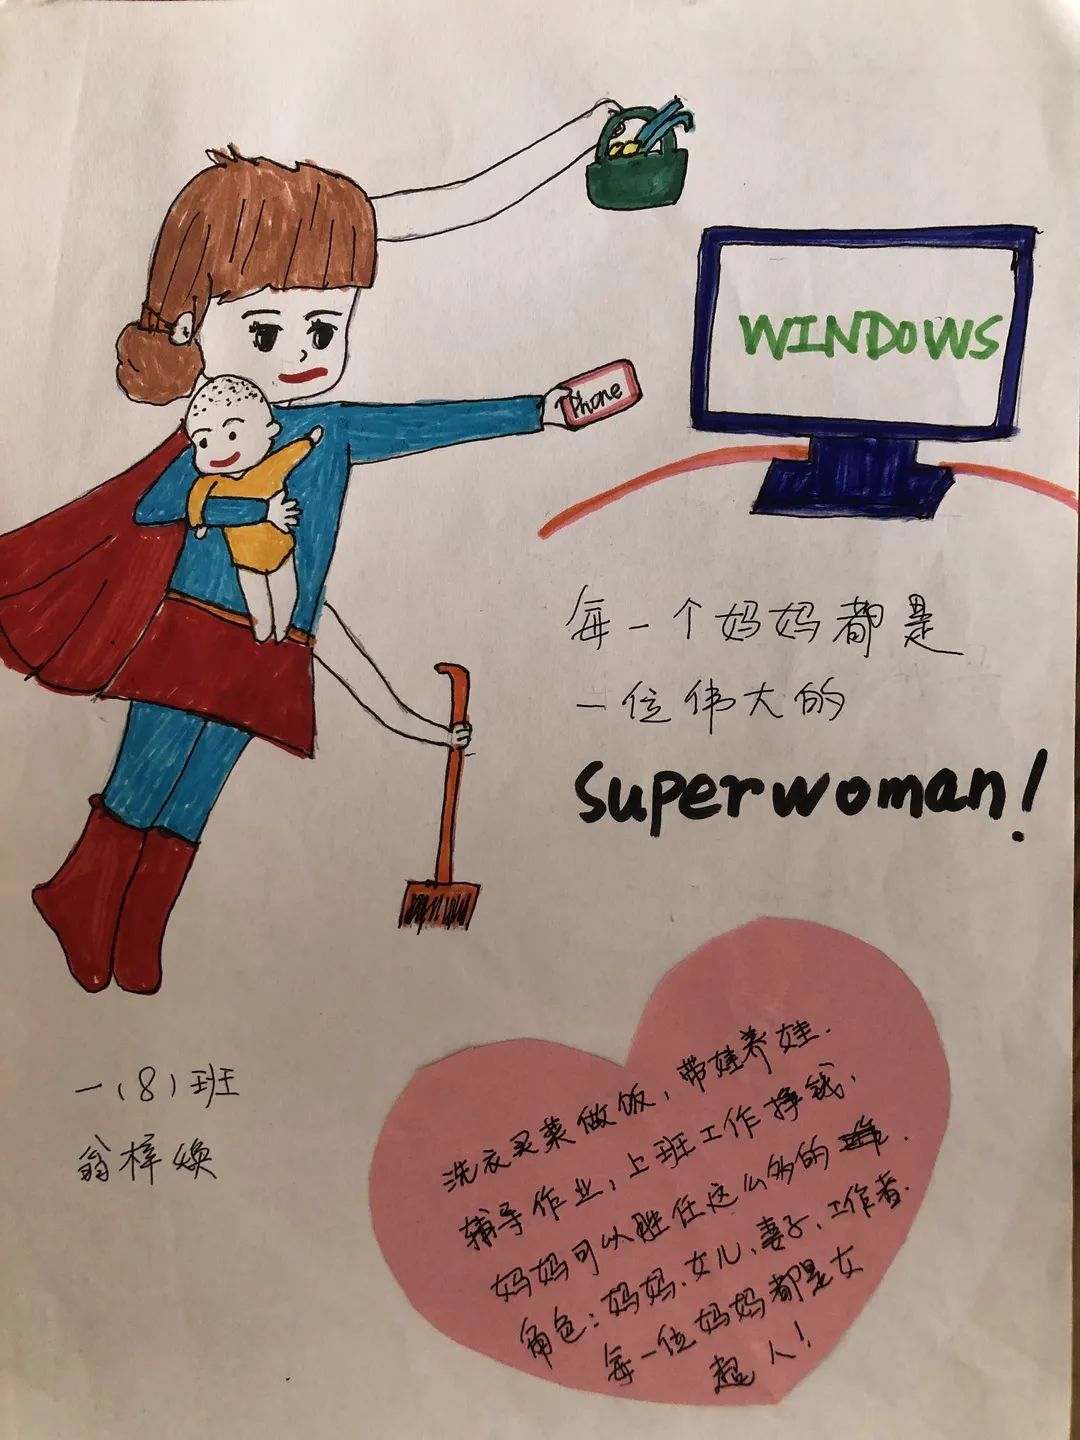 WINDOWS
Phone
每一个妈妈都是
一位伟大的
superwoman!
一（8）班
翁梓焕
洗衣买菜做饭，带娃养娃.
辅导作业，上班工作挣钱，
妈妈可以胜任这么多的
角色：妈妈、女儿、妻子、工作者.
每一位妈妈都是女
超人！